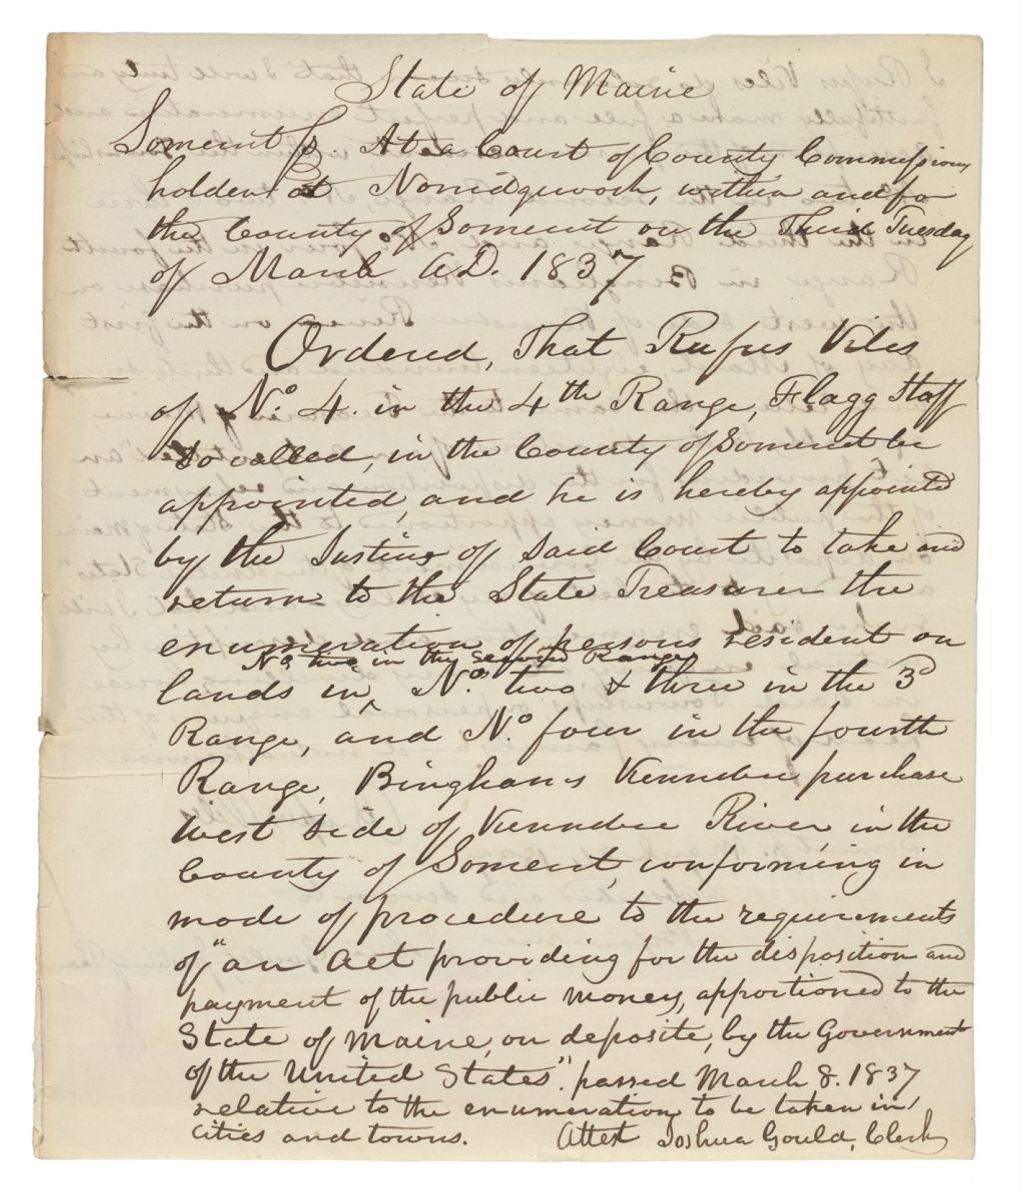 State of Maine
Somerset ss. At a Court of County Commissioners
holden at Norridgewock, within and for
the County of Somerset on the Third Tuesday
of March A.D. 1837
Ordered, That Rufus Viles
of No. 4. in the 4th Range, Flagg Staff
so called, in the County of Somerset be
appointed, and he is hereby appointed
by the Justices of said Court to take and
return to the State Treasurer the
enumeration of persons resident on
No. two in the Second Range
lands in ^ Nos. two & three in the 3d
Range, and No. four in the fourth
Range, Binghams Kennebec purchase
West side of Kennebec River, in the
County of Somerset, conforming in
mode of procedure to the requirements
of "an Act providing for the disposition and
payment of the public money, apportioned to the
State of Maine, on deposite, by the Government
of the United States". passed March 8. 1837
relative to the enumeration to be taken in
cities and towns. Attest Joshua Gould, Clerk